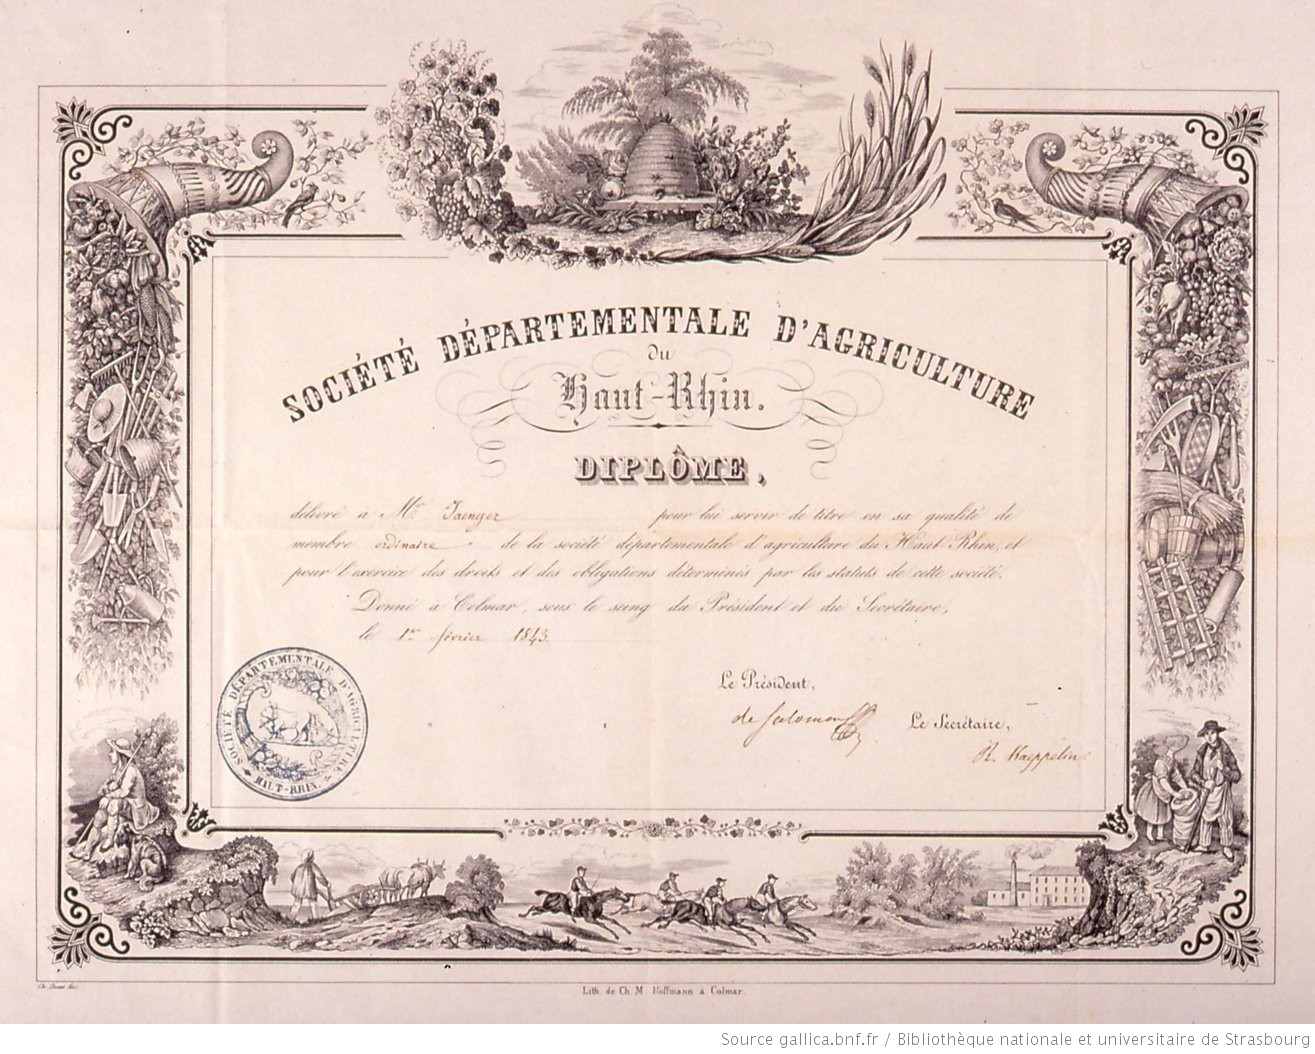 SOCIÉTÉ DÉPARTEMENTALE D'AGRICULTURE
du
Haut-Rhin.
DIPLÔME,
délivré à Mr Jaenger pour lui servir de titre en sa qualité de
membre ordinaire de la société départementale d'agriculture du Haut Rhin, et
pour l'exercice des droits et des obligations déterminés par les statuts de cette société.
Donné à Colmar, sous le seing du Président et du Secrétaire,
le 1er février 1843
Le Président,
de Salomon
Le Secrétaire,
R. Kaeppelin
SOCIÉTÉ DÉPARTEMENTALE D'AGRICULTURE
HAUT-RHIN
Lith. de Ch. M. Hoffmann à Colmar.
Source gallica.bnf.fr / Bibliothèque nationale et universitaire de Strasbourg